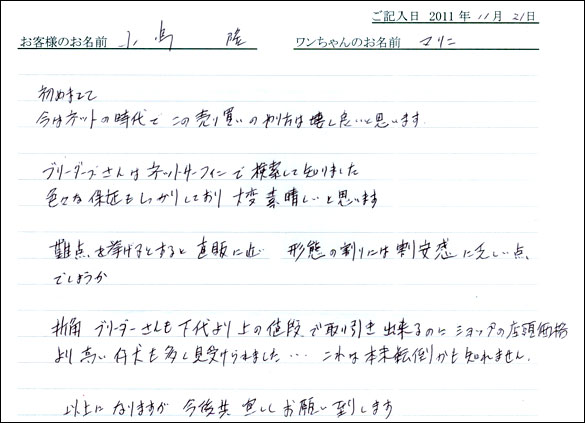 ご記入日 2011年 11月 21日
お客様のお名前 小島 陸 ワンちゃんのお名前 マリン
初めまして
今はネットの時代で この売り買いのやり方は 良いと思います
ブリーダーさんはネットサーフィンで検索して知りました
色々な保証もしっかりしており 大変素晴しいと思います
難点を挙げるとすると 直販に近 形態の割りには割安感に乏しい点
でしょうか
折角 ブリーダーさんも下代より上の値段で取り引き出来るのに ショップの店頭価格
より高い仔犬も多く見受けられました… これは本末転倒かも知れません
以上になりますが 今後共 宜しくお願い致します